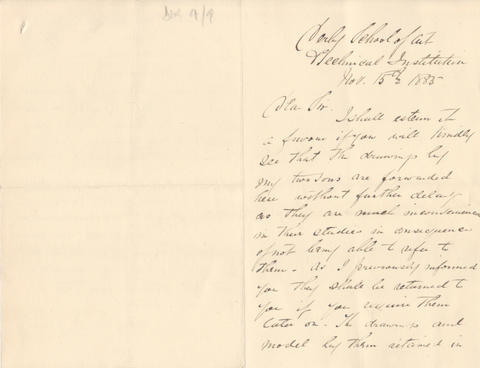 Derby School of Art
Technical Institution
Nov. 15th 1885
Dear Sir.
I shall esteem it
a favour if you will kindly
see that the drawings by
my two sons are forwarded
here without further delay
as they are much inconvenienced
in their studies in consequence
of not being able to refer to
them. As I previously informed
you they shall be returned to
you if you require them
later on. The drawings and
model by them retained in